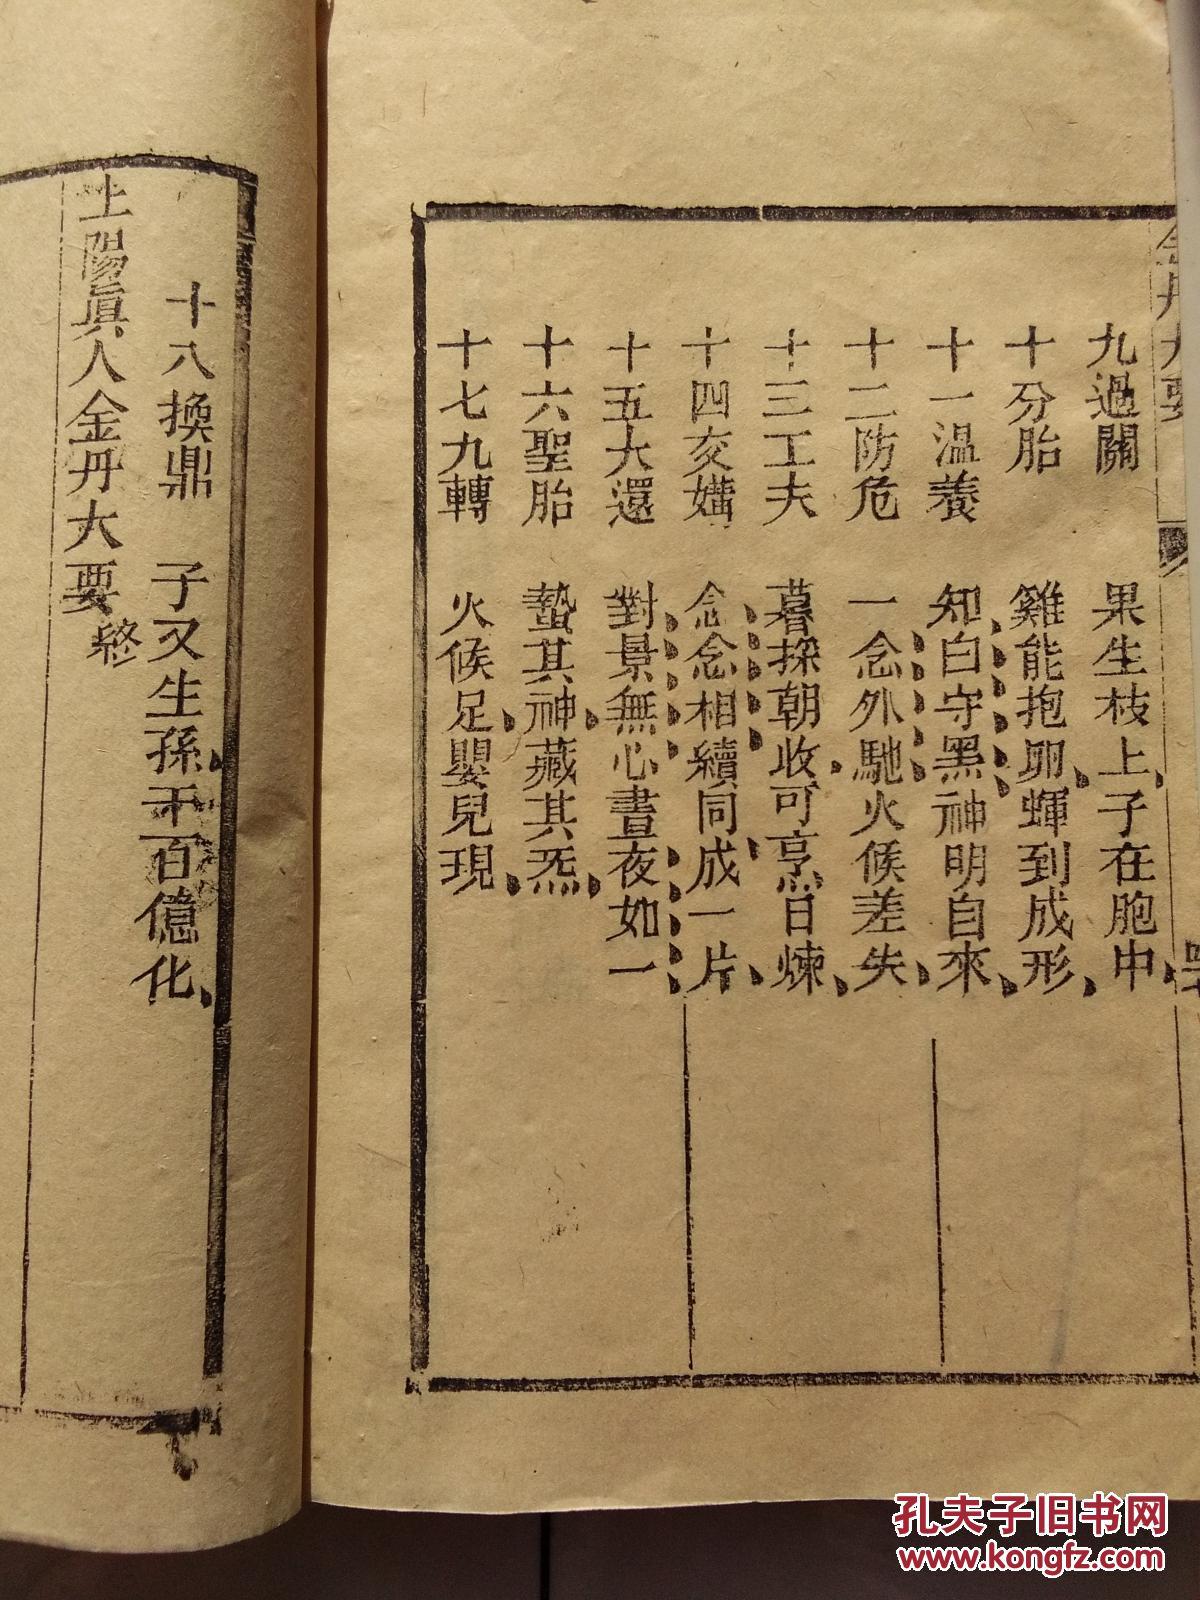 金丹大要
九過關　果生枝上子在胞中
十分胎　雞能抱卵蟬到成形
十一溫養　知白守黑神明自來
十二防危　一念外馳火候差失
十三工夫　暮採朝收可烹日煉
十四交媾　念念相續同成一片
十五大還　對景無心晝夜如一
十六聖胎　蟄其神藏其炁
十七九轉　火候足嬰兒現
十八換鼎　子又生孫千百億化
上陽眞人金丹大要終
孔夫子旧书网
www.kongfz.com